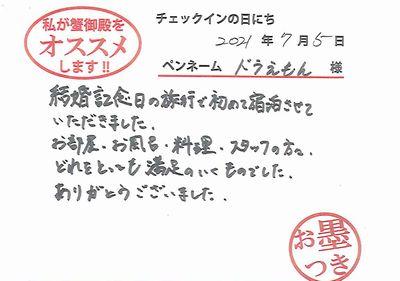 私が蟹御殿を
オススメ
します!!
チェックインの日にち
2021年7月5日
ペンネーム ドラえもん 様
結婚記念日の旅行で初めて宿泊させて
いただきました.
お部屋・お風呂・料理・スタッフの方々、
どれをとっても満足のいくものでした.
ありがとうございました.
お墨
つき